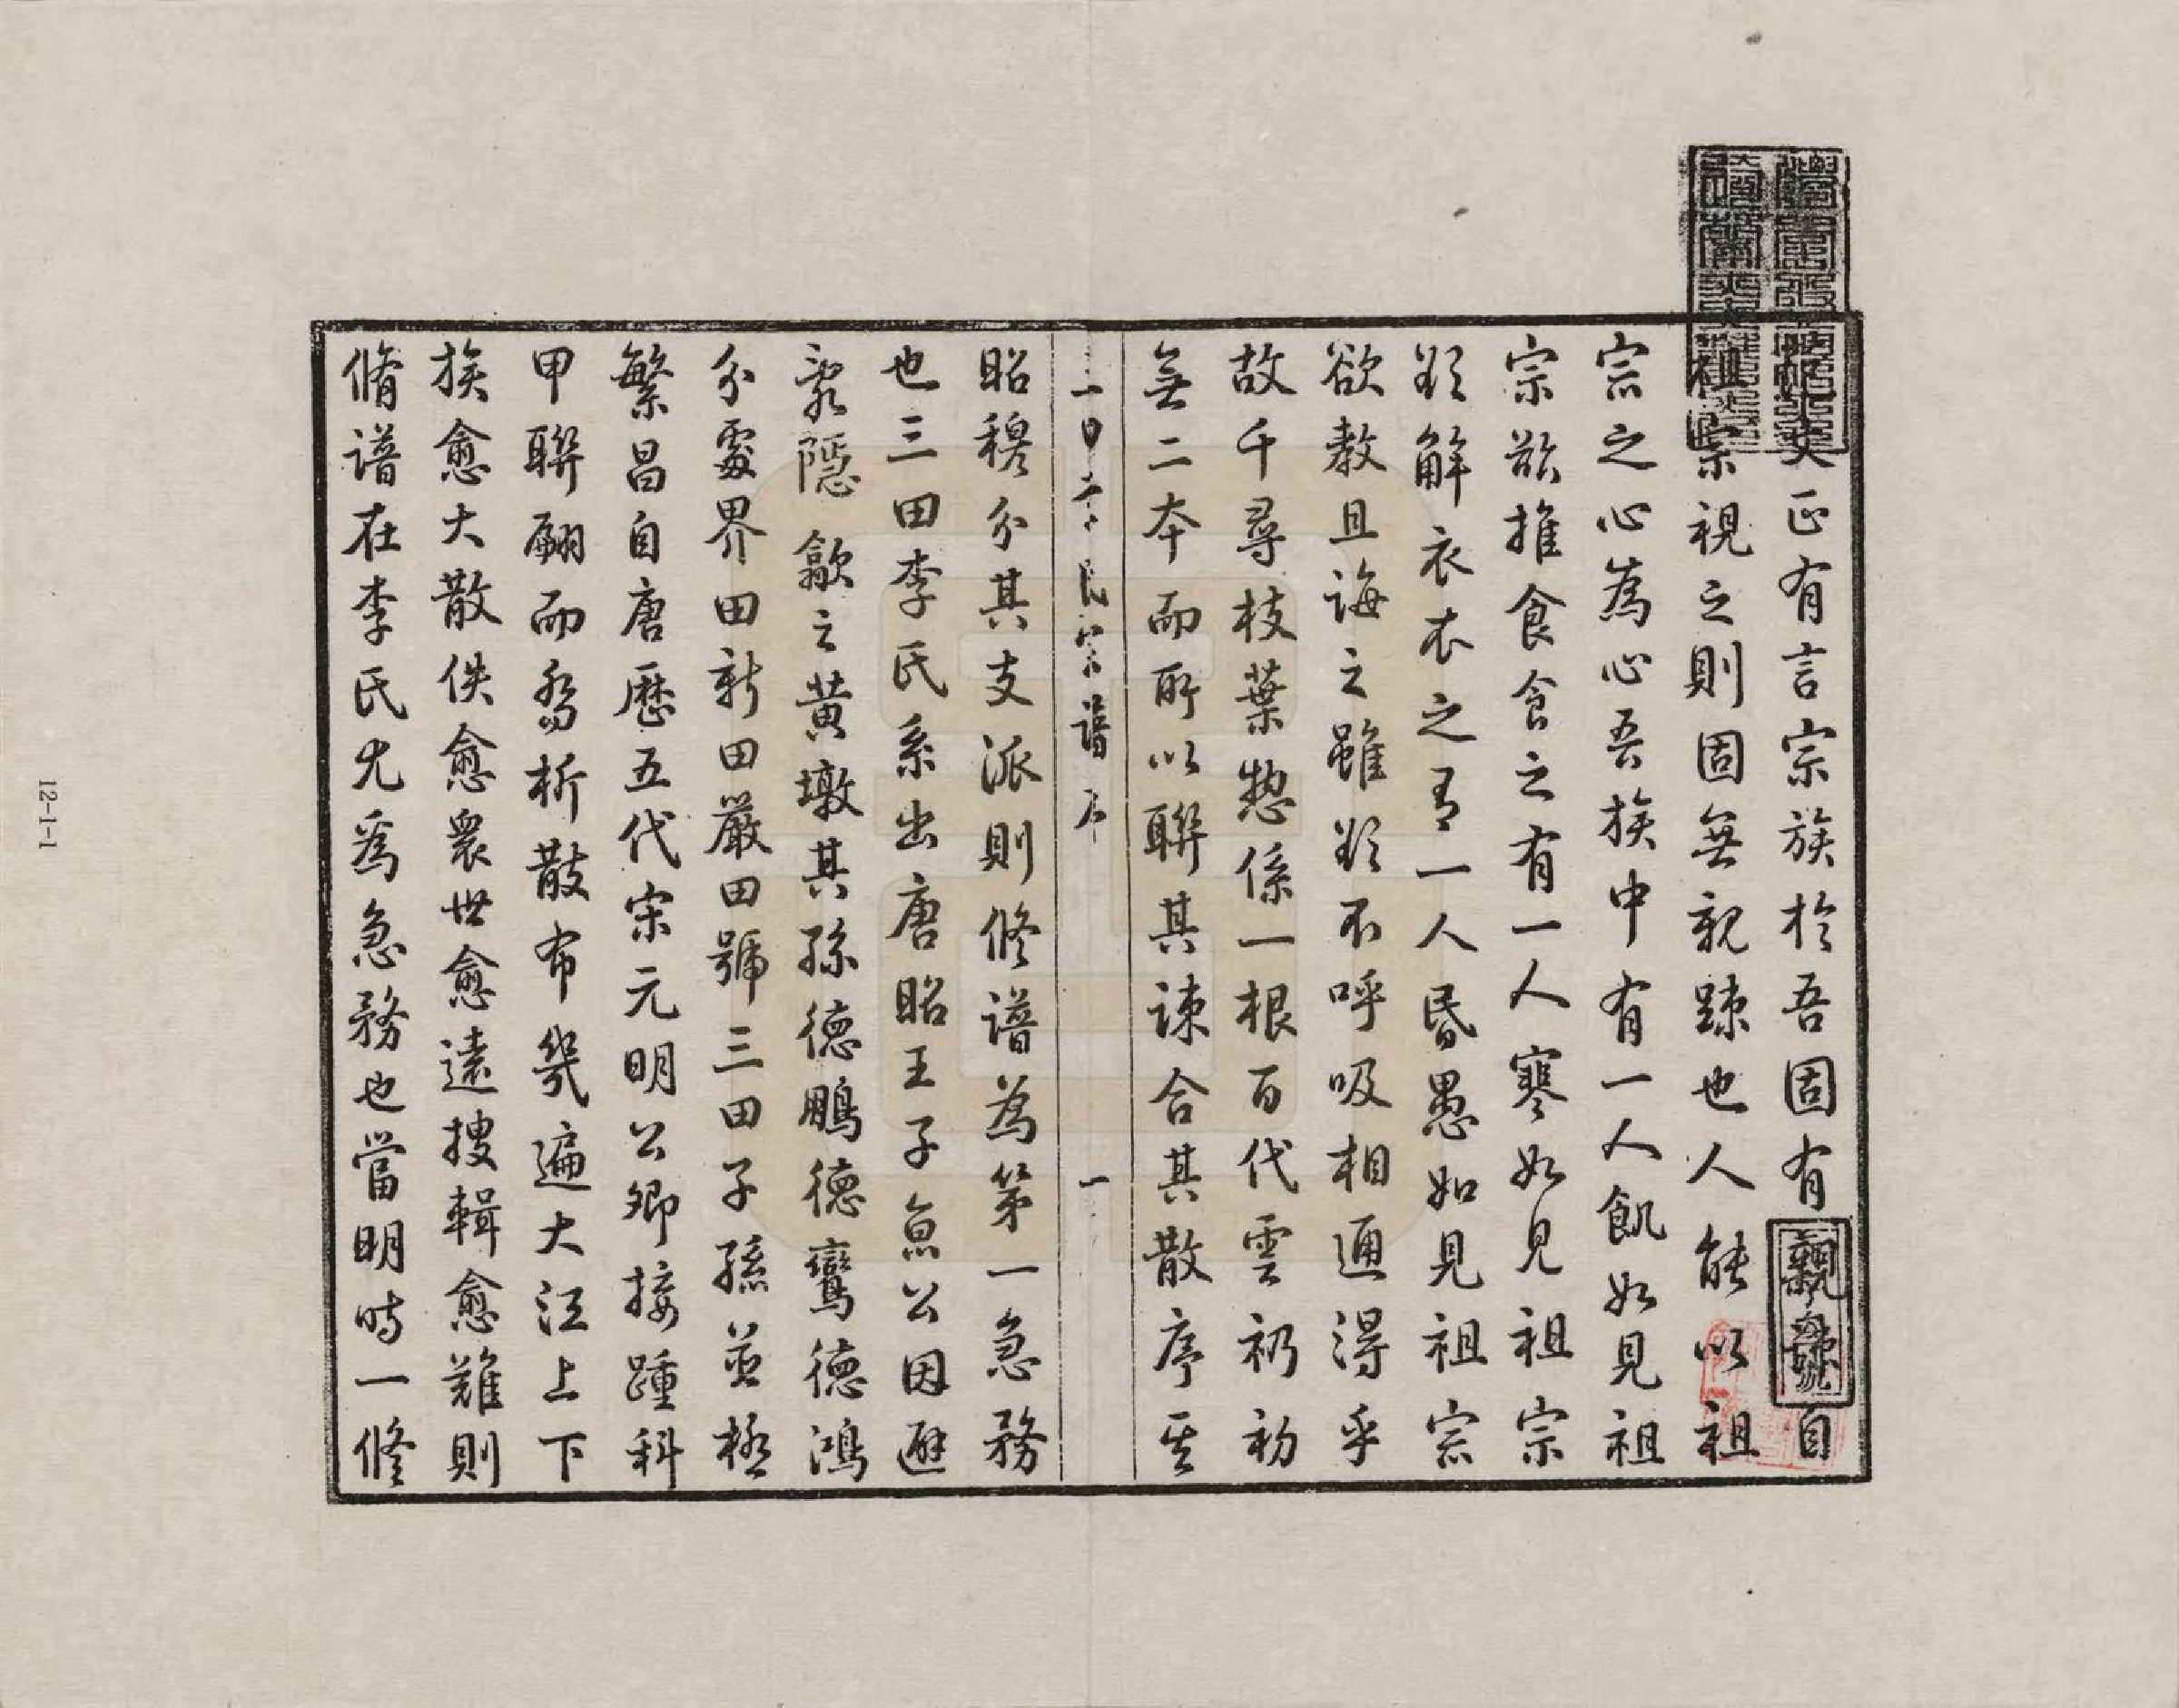 文正有言宗族於吾固有親疎自
祖宗視之則固無親疎也人能以祖
宗之心為心吾族中有一人飢如見祖
宗欲推食食之有一人寒如見祖宗
欲解衣衣之有一人昏愚如見祖宗
欲教且誨之雖欲不呼吸相通得乎
故千尋枝葉揔係一根百代雲礽初
無二本而所以聯其諫合其散序其
三田李氏宗譜 序 一
昭穆分其支派則修譜為第一急務
也三田李氏系出唐昭王子京公因避
亂隱歙之黄墩其孫德鵬德鸞德鴻
分處界田新田嚴田號三田子孫並極
繁昌自唐歷五代宋元明公卿接踵科
甲聯翩而分析散布幾遍大江上下
族愈大散佚愈衆世愈遠搜輯愈難則
脩譜在李氏尤為急務也當明時一修
12-1-1